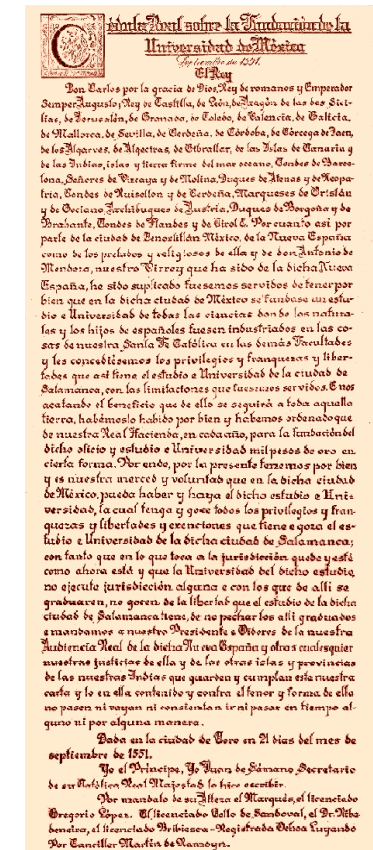 Cédula Real sobre la Fundación de la
Universidad de México
Septiembre de 1551.
El Rey
Don Carlos por la gracia de Dios, Rey de romanos y Emperador
Semper Augusto; Rey de Castilla, de León, de Aragón de las dos Sici-
lias, de Jerusalén, de Granada, de Toledo, de Valencia, de Galicia,
de Mallorca, de Sevilla, de Cerdeña, de Córdoba, de Córcega de Jaen,
de los Algarves, de Algeciras, de Gibraltar, de las Islas de Canaria y
de las Indias, islas y tierra firme del mar oceano, Condes de Barce-
lona, Señores de Vizcaya y de Molina, Duques de Atenas y de Neopa-
tria, Condes de Ruisellon y de Cerdeña, Marqueses de Oristán
y de Gociano, Archiduques de Austria, Duques de Borgoña y de
Brabante, Condes de Flandes y de Tirol E. Por cuanto así por
parte de la ciudad de Tenoxtitlán México, de la Nueva España
como de los prelados y religiosos de ella y de don Antonio de
Mendoza, nuestro Virrey que ha sido de la dicha Nueva
España, he sido suplicado fuesemos servidos de tener por
bien que en la dicha ciudad de México se fundase un estu-
dio e Universidad de todas las ciencias donde los natura-
les y los hijos de españoles fuesen industriados en las co-
sas de nuestra Santa Fe Católica en las demás Facultades
y les concediésemos los privilegios y franquezas y liber-
tades que así tiene el estudio e Universidad de la ciudad de
Salamanca, con las limitaciones que fuésemos servidos. E nos
acatando el beneficio que de ello se seguirá a toda aquella
tierra, habémoslo habido por bien y habemos ordenado que
de nuestra Real Hacienda, en cada año, para la fundación del
dicho oficio y estudio e Universidad mil pesos de oro en
cierta forma. Por ende, por la presente tenemos por bien
y es nuestra merced y voluntad que en la dicha ciudad
de México, pueda haber y haya el dicho estudio e Uni-
versidad, la cual tenga y goce todos los privilegios y fran-
quezas y libertades y exenciones que tiene e goza el es-
tudio e Universidad de la dicha ciudad de Salamanca;
con tanto que en lo que toca a la jurisdicción quede y esté
como ahora está y que la Universidad del dicho estudio,
no ejecute jurisdicción alguna e con los que de allí se
graduaren, no gocen de la libertad que el estudio de la dicha
ciudad de Salamanca tiene, de no pechar los allí graduados
e mandamos a nuestro Presidente e Oidores de la nuestra
Audiencia Real de la dicha Nueva España y otras cualesquier
nuestras justicias de ella y de las otras islas y provincias
de las nuestras Indias que guarden y cumplan esta nuestra
carta y lo en ella contenido y contra el tenor y forma de ello
no pasen ni vayan ni consientan ir ni pasar en tiempo al-
guno ni por alguna manera.
Dada en la ciudad de Toro en 21 días del mes de
septiembre de 1551.
Yo el Príncipe, Yo Juan de Sámano, Secretario
de su Católica Real Majestad lo hice escribir.
Por mandato de su Alteza el Marqués, el licenciado
Gregorio López. El licenciado Tello de Sandoval, el Dr. Riba
deneira, el licenciado Bribiesca - Registrada Ochoa Luyando
Por Canciller Martín de Ramoyn.